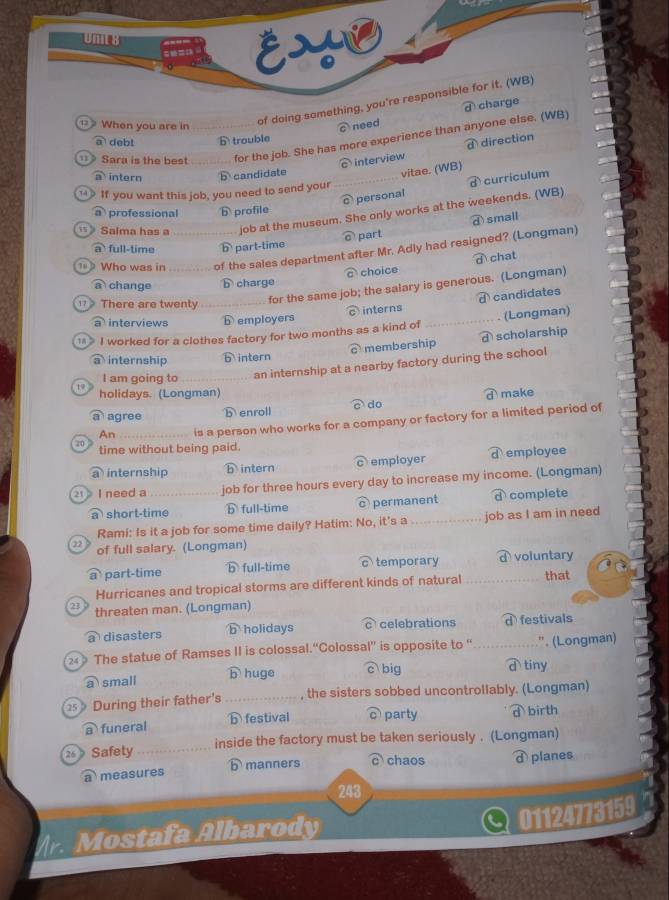 Unit 8
مبدع
12 When you are in ............ of doing something, you're responsible for it. (WB)
a debt b trouble c need d charge
13 Sara is the best ............ for the job. She has more experience than anyone else. (WB)
a intern b candidate c interview d direction
14 If you want this job, you need to send your ............ vitae. (WB)
a professional b profile c personal d curriculum
15 Salma has a ............ job at the museum. She only works at the weekends. (WB)
a full-time b part-time c part d small
16 Who was in ............ of the sales department after Mr. Adly had resigned? (Longman)
a change b charge c choice d chat
17 There are twenty ............ for the same job; the salary is generous. (Longman)
a interviews b employers c interns d candidates
18 I worked for a clothes factory for two months as a kind of ............ . (Longman)
a internship b intern c membership d scholarship
19 I am going to ............ an internship at a nearby factory during the school
holidays. (Longman)
a agree b enroll c do d make
20 An ............ is a person who works for a company or factory for a limited period of
time without being paid.
a internship b intern c employer d employee
21 I need a ............ job for three hours every day to increase my income. (Longman)
a short-time b full-time c permanent d complete
22 Rami: Is it a job for some time daily? Hatim: No, it's a ............ job as I am in need
of full salary. (Longman)
a part-time b full-time c temporary d voluntary
23 Hurricanes and tropical storms are different kinds of natural ............ that
threaten man. (Longman)
a disasters b holidays c celebrations d festivals
24 The statue of Ramses II is colossal."Colossal" is opposite to "............". (Longman)
a small b huge c big d tiny
25 During their father's ............ , the sisters sobbed uncontrollably. (Longman)
a funeral b festival c party d birth
26 Safety ............ inside the factory must be taken seriously . (Longman)
a measures b manners c chaos d planes
243
Mr. Mostafa Albarody 01124773159